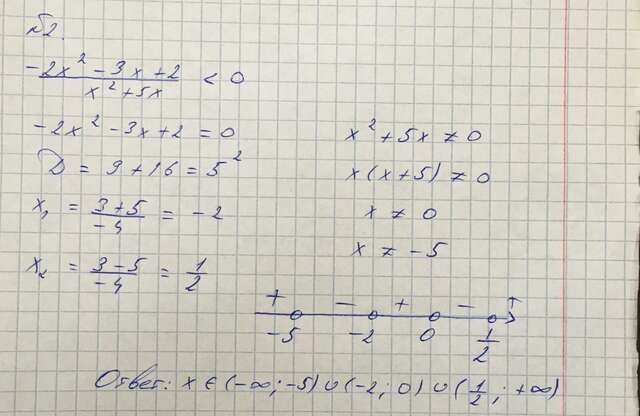 №2.
-2x² - 3x + 2 / x² + 5x < 0
-2x² - 3x + 2 = 0
D = 9 + 16 = 5²
x₁ = 3 + 5 / -4 = -2
x₂ = 3 - 5 / -4 = 1/2
x² + 5x ≠ 0
x(x + 5) ≠ 0
x ≠ 0
x ≠ -5
+ - + - +
-5 -2 0 1/2
Ответ: x ∈ (-∞; -5) ∪ (-2; 0) ∪ (1/2; +∞)